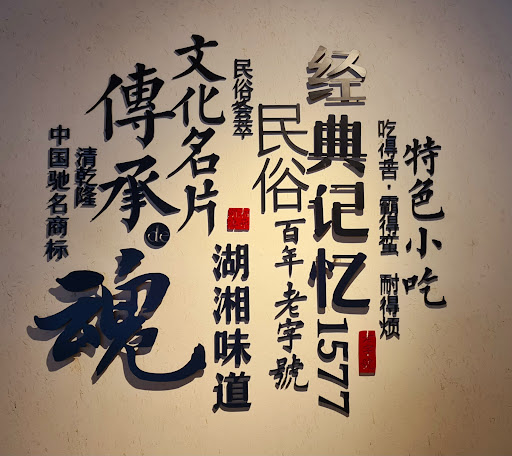 特色小吃
吃得苦·霸得蛮 耐得烦
经典记忆1577
民俗百年老字號
民俗荟萃
湖湘味道
文化名片
傳承de魂
清乾隆
中国驰名商标